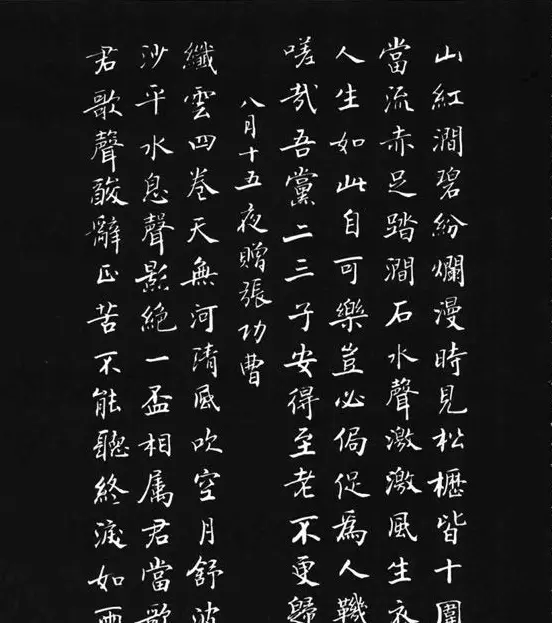 山紅澗碧紛爛漫時見松櫪皆十圍
當流赤足踏澗石水聲激激風生衣
人生如此自可樂豈必侷促爲人鞿
嗟哉吾黨二三子安得至老不更歸
八月十五夜贈張功曹
纖雲四卷天無河清風吹空月舒波
沙平水息聲影絶一盃相属君當歌
君歌聲酸辭正苦不能聽終淚如雨